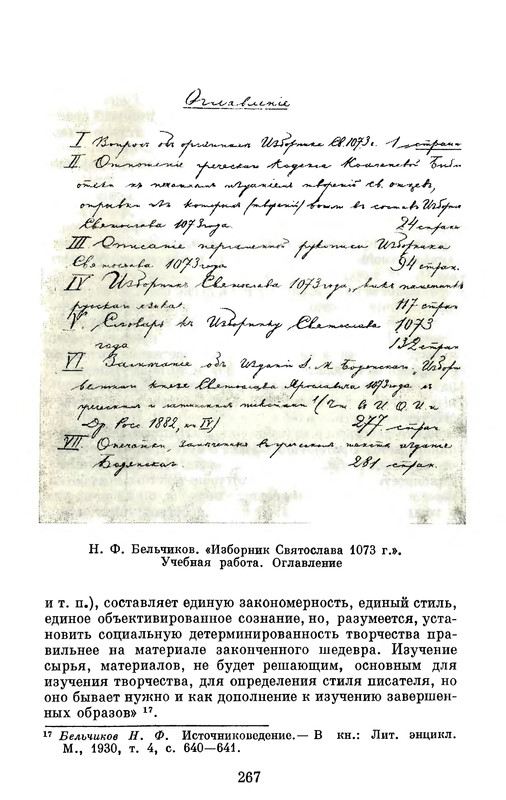 Оглавленіе
I Вопросъ объ оригиналѣ Изборника Св. 1073 г. 1 стран
II. Отношеніе греческаго Кодекса Коаленевой Библ
отеки къ печатнымъ изданіямъ твореній св. отцевъ,
отрывки изъ которыхъ (твореній) вошли въ составъ Изборн
Святослава 1073 года. 24 стран.
III. Описаніе пергаменной рукописи Изборника
Святослава 1073 года 94 стран.
IV Изборникъ Святослава 1073 года, какъ памятникъ
русскаго языка. 117 стран
V. Словарь къ Изборнику Святослава 1073
года 132 стран
VI Замѣчаніе объ изданіи Бодянскаго, Изборн
великаго князя Святослава Ярославича 1073 года съ
греческимъ и латинскимъ текстами (Чт. въ И. О. И. и
Др. Рос. 1882, кн IV) 277 стран
VII. Опечатки, замѣченныя въ греческомъ текстѣ изданія
Бодянскаго. 281 стран.
Н. Ф. Бельчиков. «Изборник Святослава 1073 г.».
Учебная работа. Оглавление
и т. п.), составляет единую закономерность, единый стиль,
единое объективированное сознание, но, разумеется, уста-
новить социальную детерминированность творчества пра-
вильнее на материале законченного шедевра. Изучение
сырья, материалов, не будет решающим, основным для
изучения творчества, для определения стиля писателя, но
оно бывает нужно и как дополнение к изучению завершен-
ных образов» 17.
17 Бельчиков Н. Ф. Источниковедение.— В кн.: Лит. энцикл.
М., 1930, т. 4, с. 640—641.
267